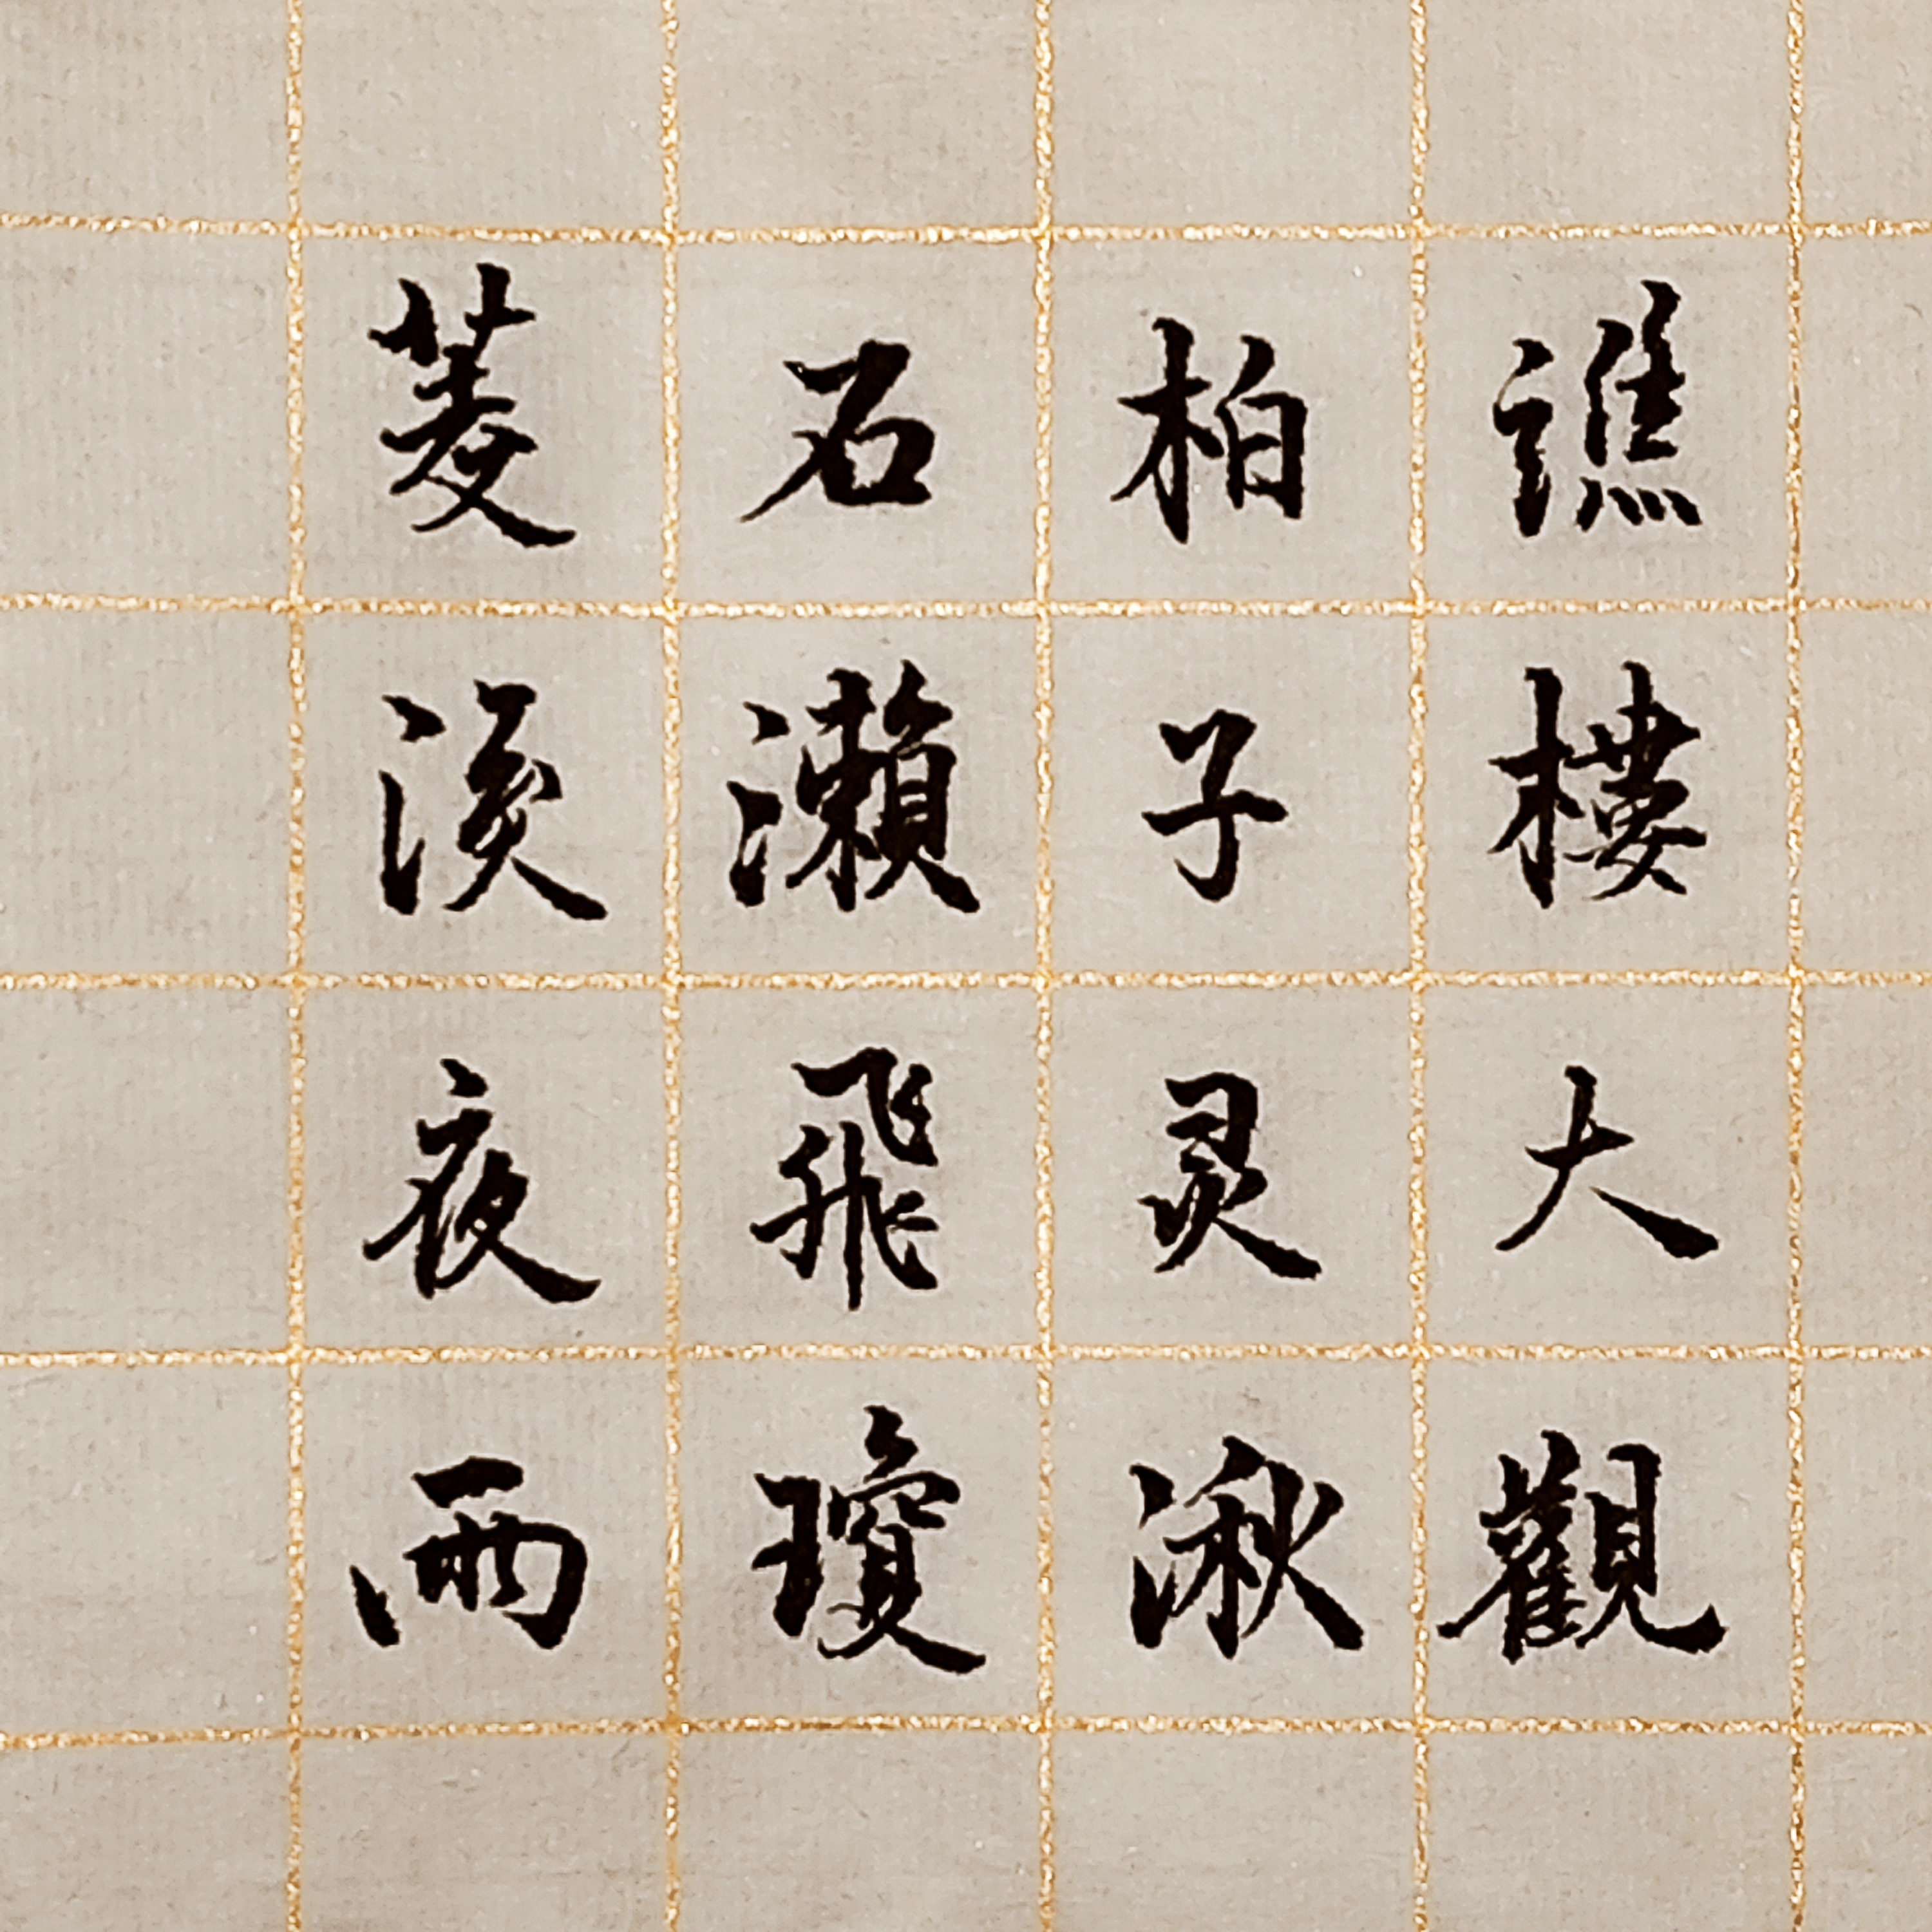 譙樓大觀
柏子灵湫
石瀨飛瓊
菱溪夜雨